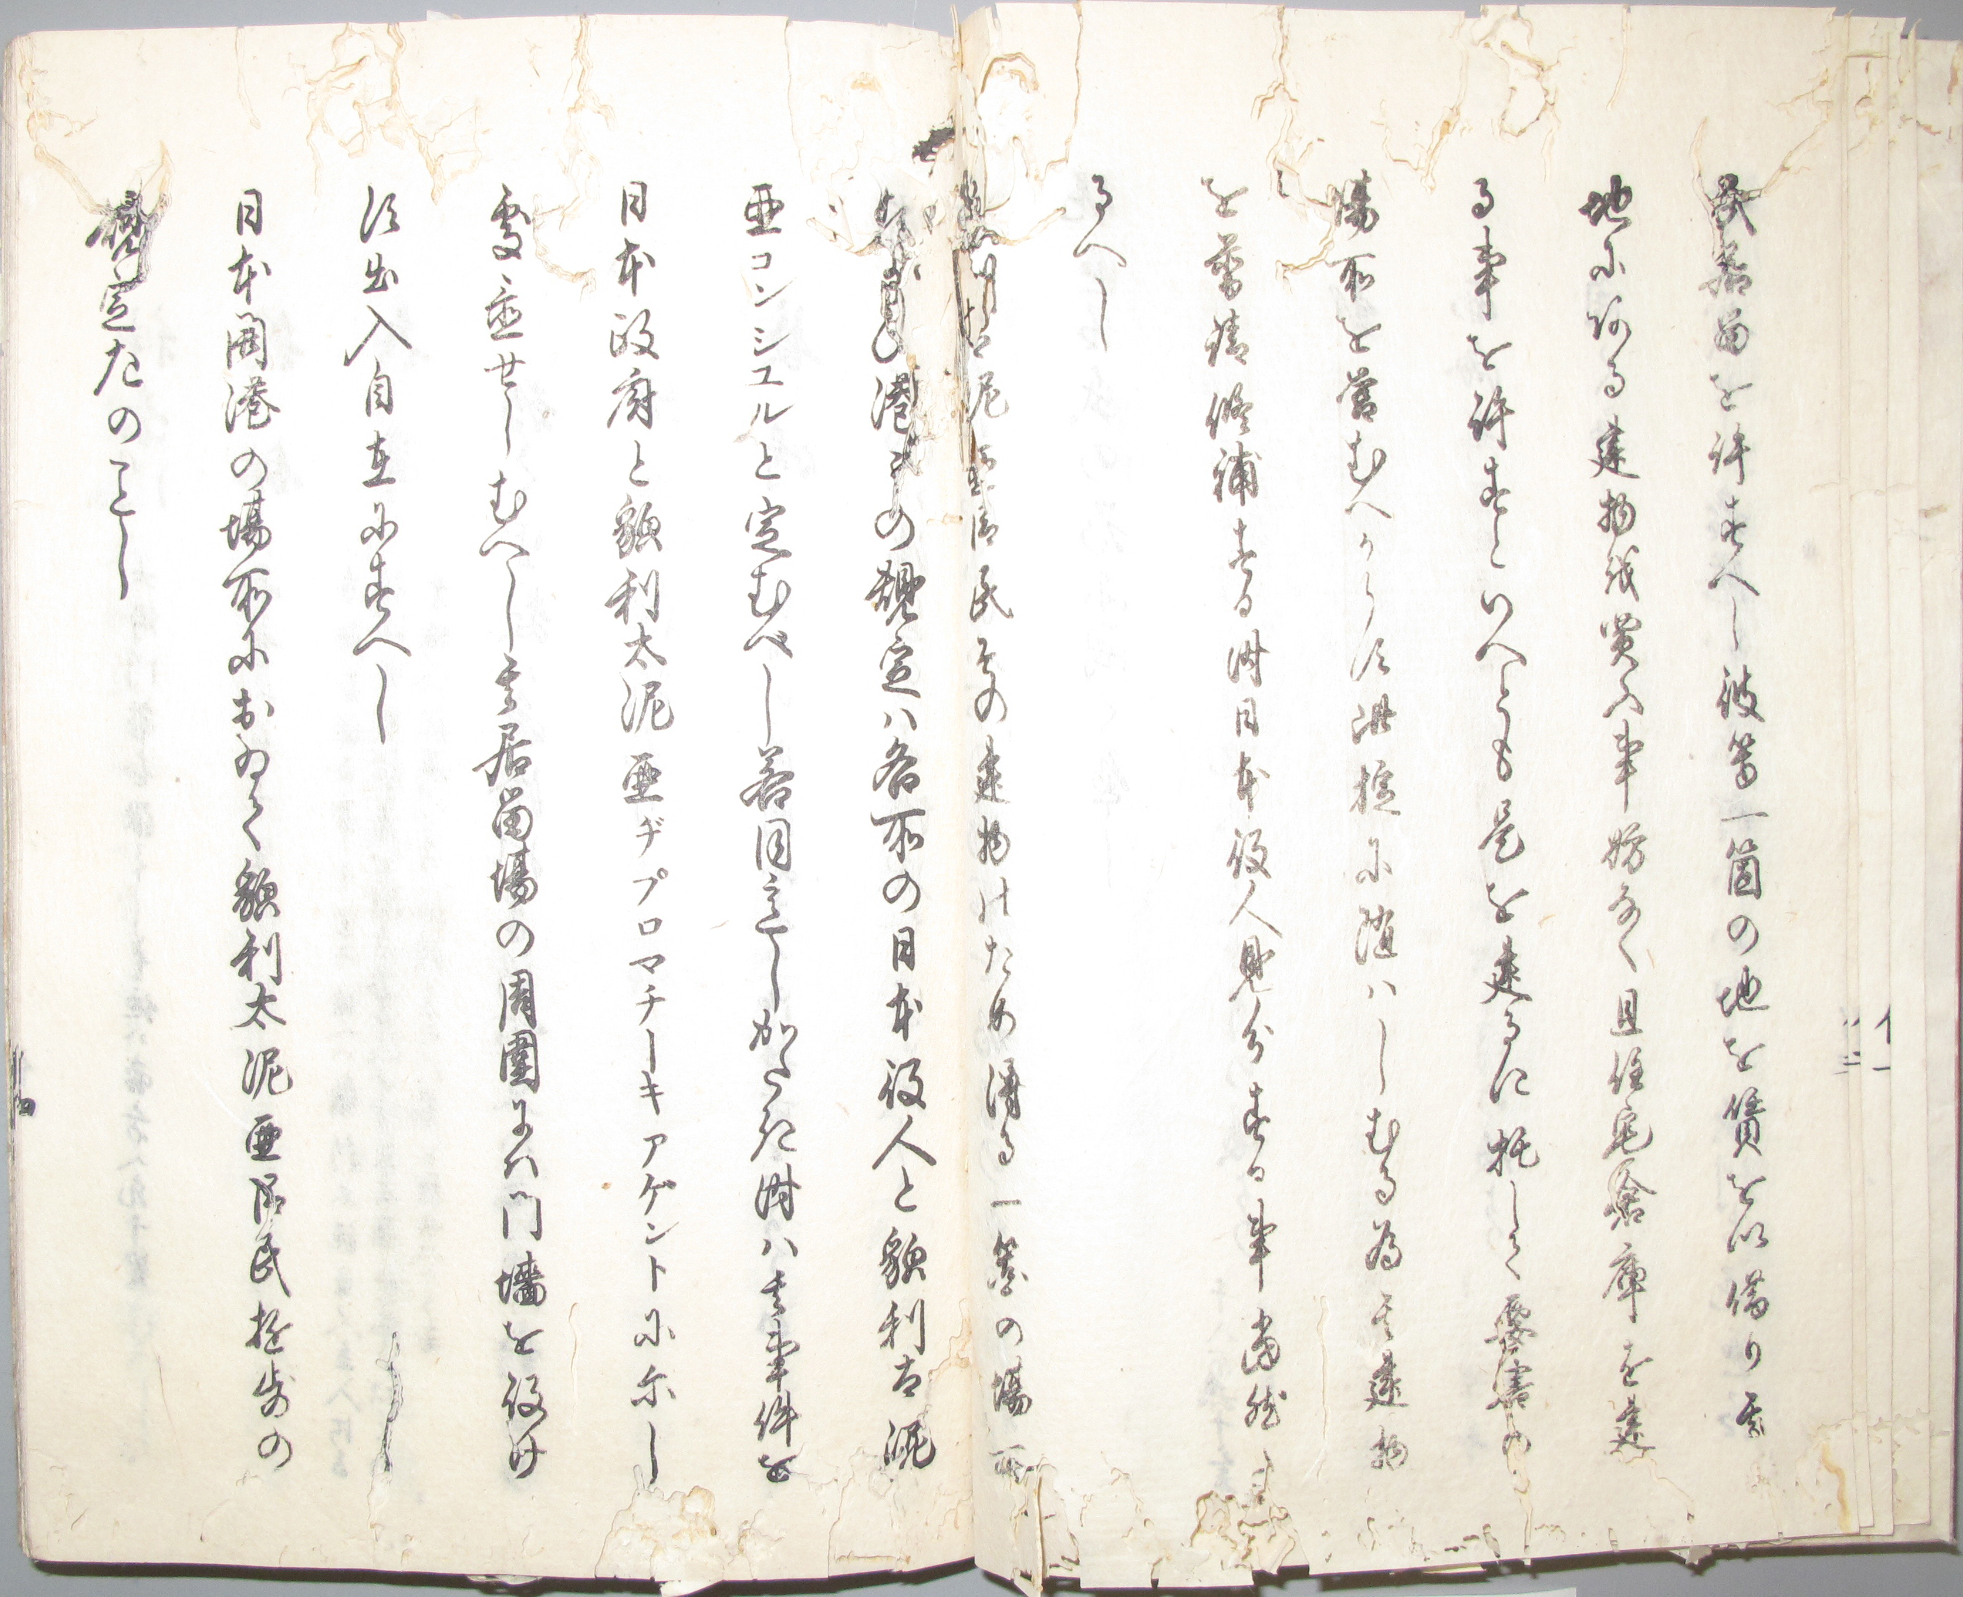 民居留を許すへし彼等一箇の地を賃を以借り其
地に阿る建物を買ふ事妨なく且住宅倉庫を建
る事を許すといへとも是を建るに托して要害の
場所を営むへからす此掟に随ハしむる為其建物
を普請修補する時日本役人見分する事当然
るへし
泥 臣民等の建物のため得る一箇の場所
港々の規定ハ各所の日本役人と貌利太泥
亜コンシユルと定むべし若同意しかたき時ハ其事件を
日本政府と貌利太泥亜ヂプロマチーキアゲントに示し
処置せしむへし其居留場の周囲にハ門墻を設け
す出入自在にすへし
日本開港の場所におゐて貌利太泥亜臣民遊歩の
規定左のことし